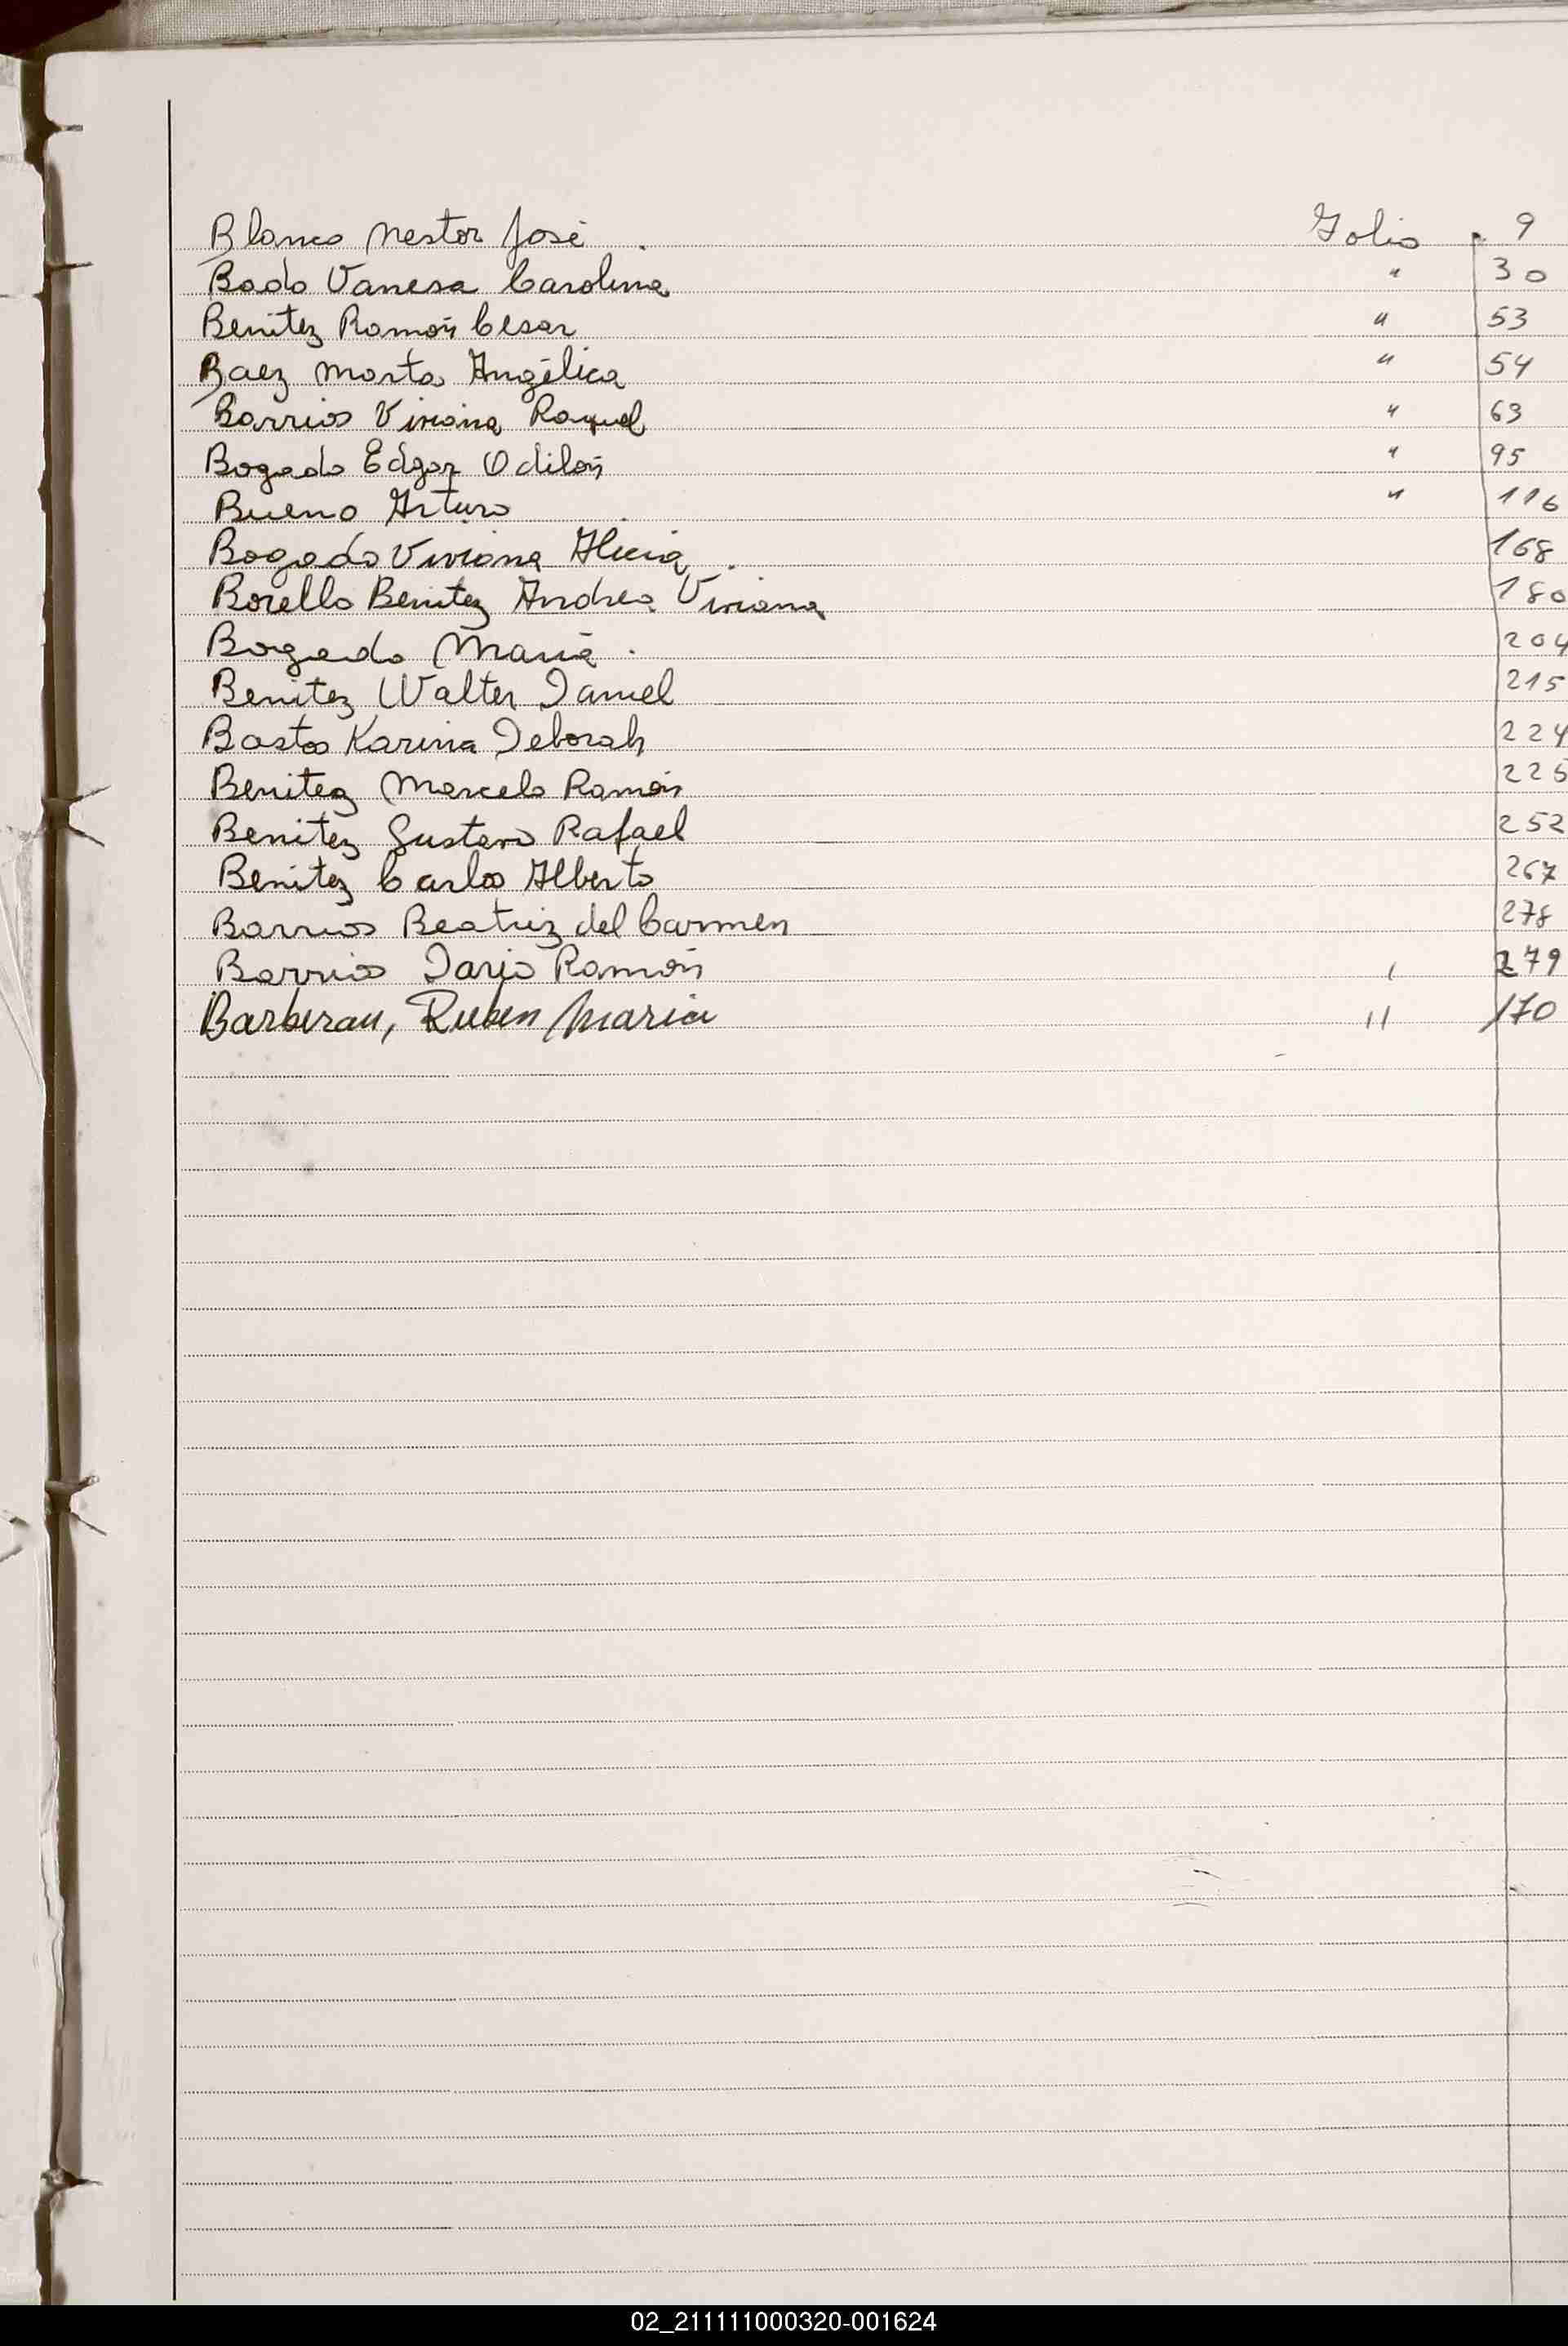 Blanco Nestor José . Folio . 9
Bado Vanesa Carolina " 30
Benitez Ramón Cesar " 53
Baez Marta Angélica " 54
Barrios Viviana Raquel " 63
Bogado Edgar Odilón " 95
Bueno Arturo " 116
Bogado Viviana Alicia . 168
Borello Benitez Andrea Viviana 180
Bogado Maria . 204
Benitez Walter Daniel 215
Basto Karina Deborah 224
Benitez Marcelo Ramón 225
Benitez Gustavo Rafael 252
Benitez Carlos Alberto 267
Barrios Beatriz del Carmen 278
Barrios Dario Ramón 279
Barberau, Ruben Maria " 170
02_211111000320-001624